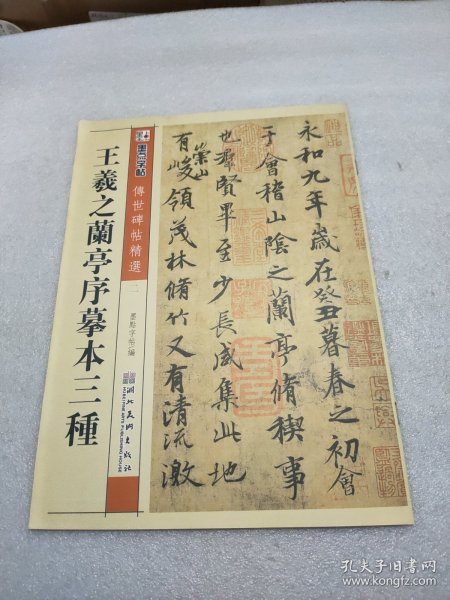 王羲之蘭亭序摹本三種
墨点字帖
傳世碑帖精選
二
墨點字帖/編
湖北美術出版社
HUBEI FINE ARTS PUBLISHING HOUSE
永和九年歲在癸丑暮春之初會
于會稽山陰之蘭亭脩稧事
也群賢畢至少長咸集此地
有崇山峻領茂林脩竹又有清流激
孔夫子旧书网
www.kongfz.com